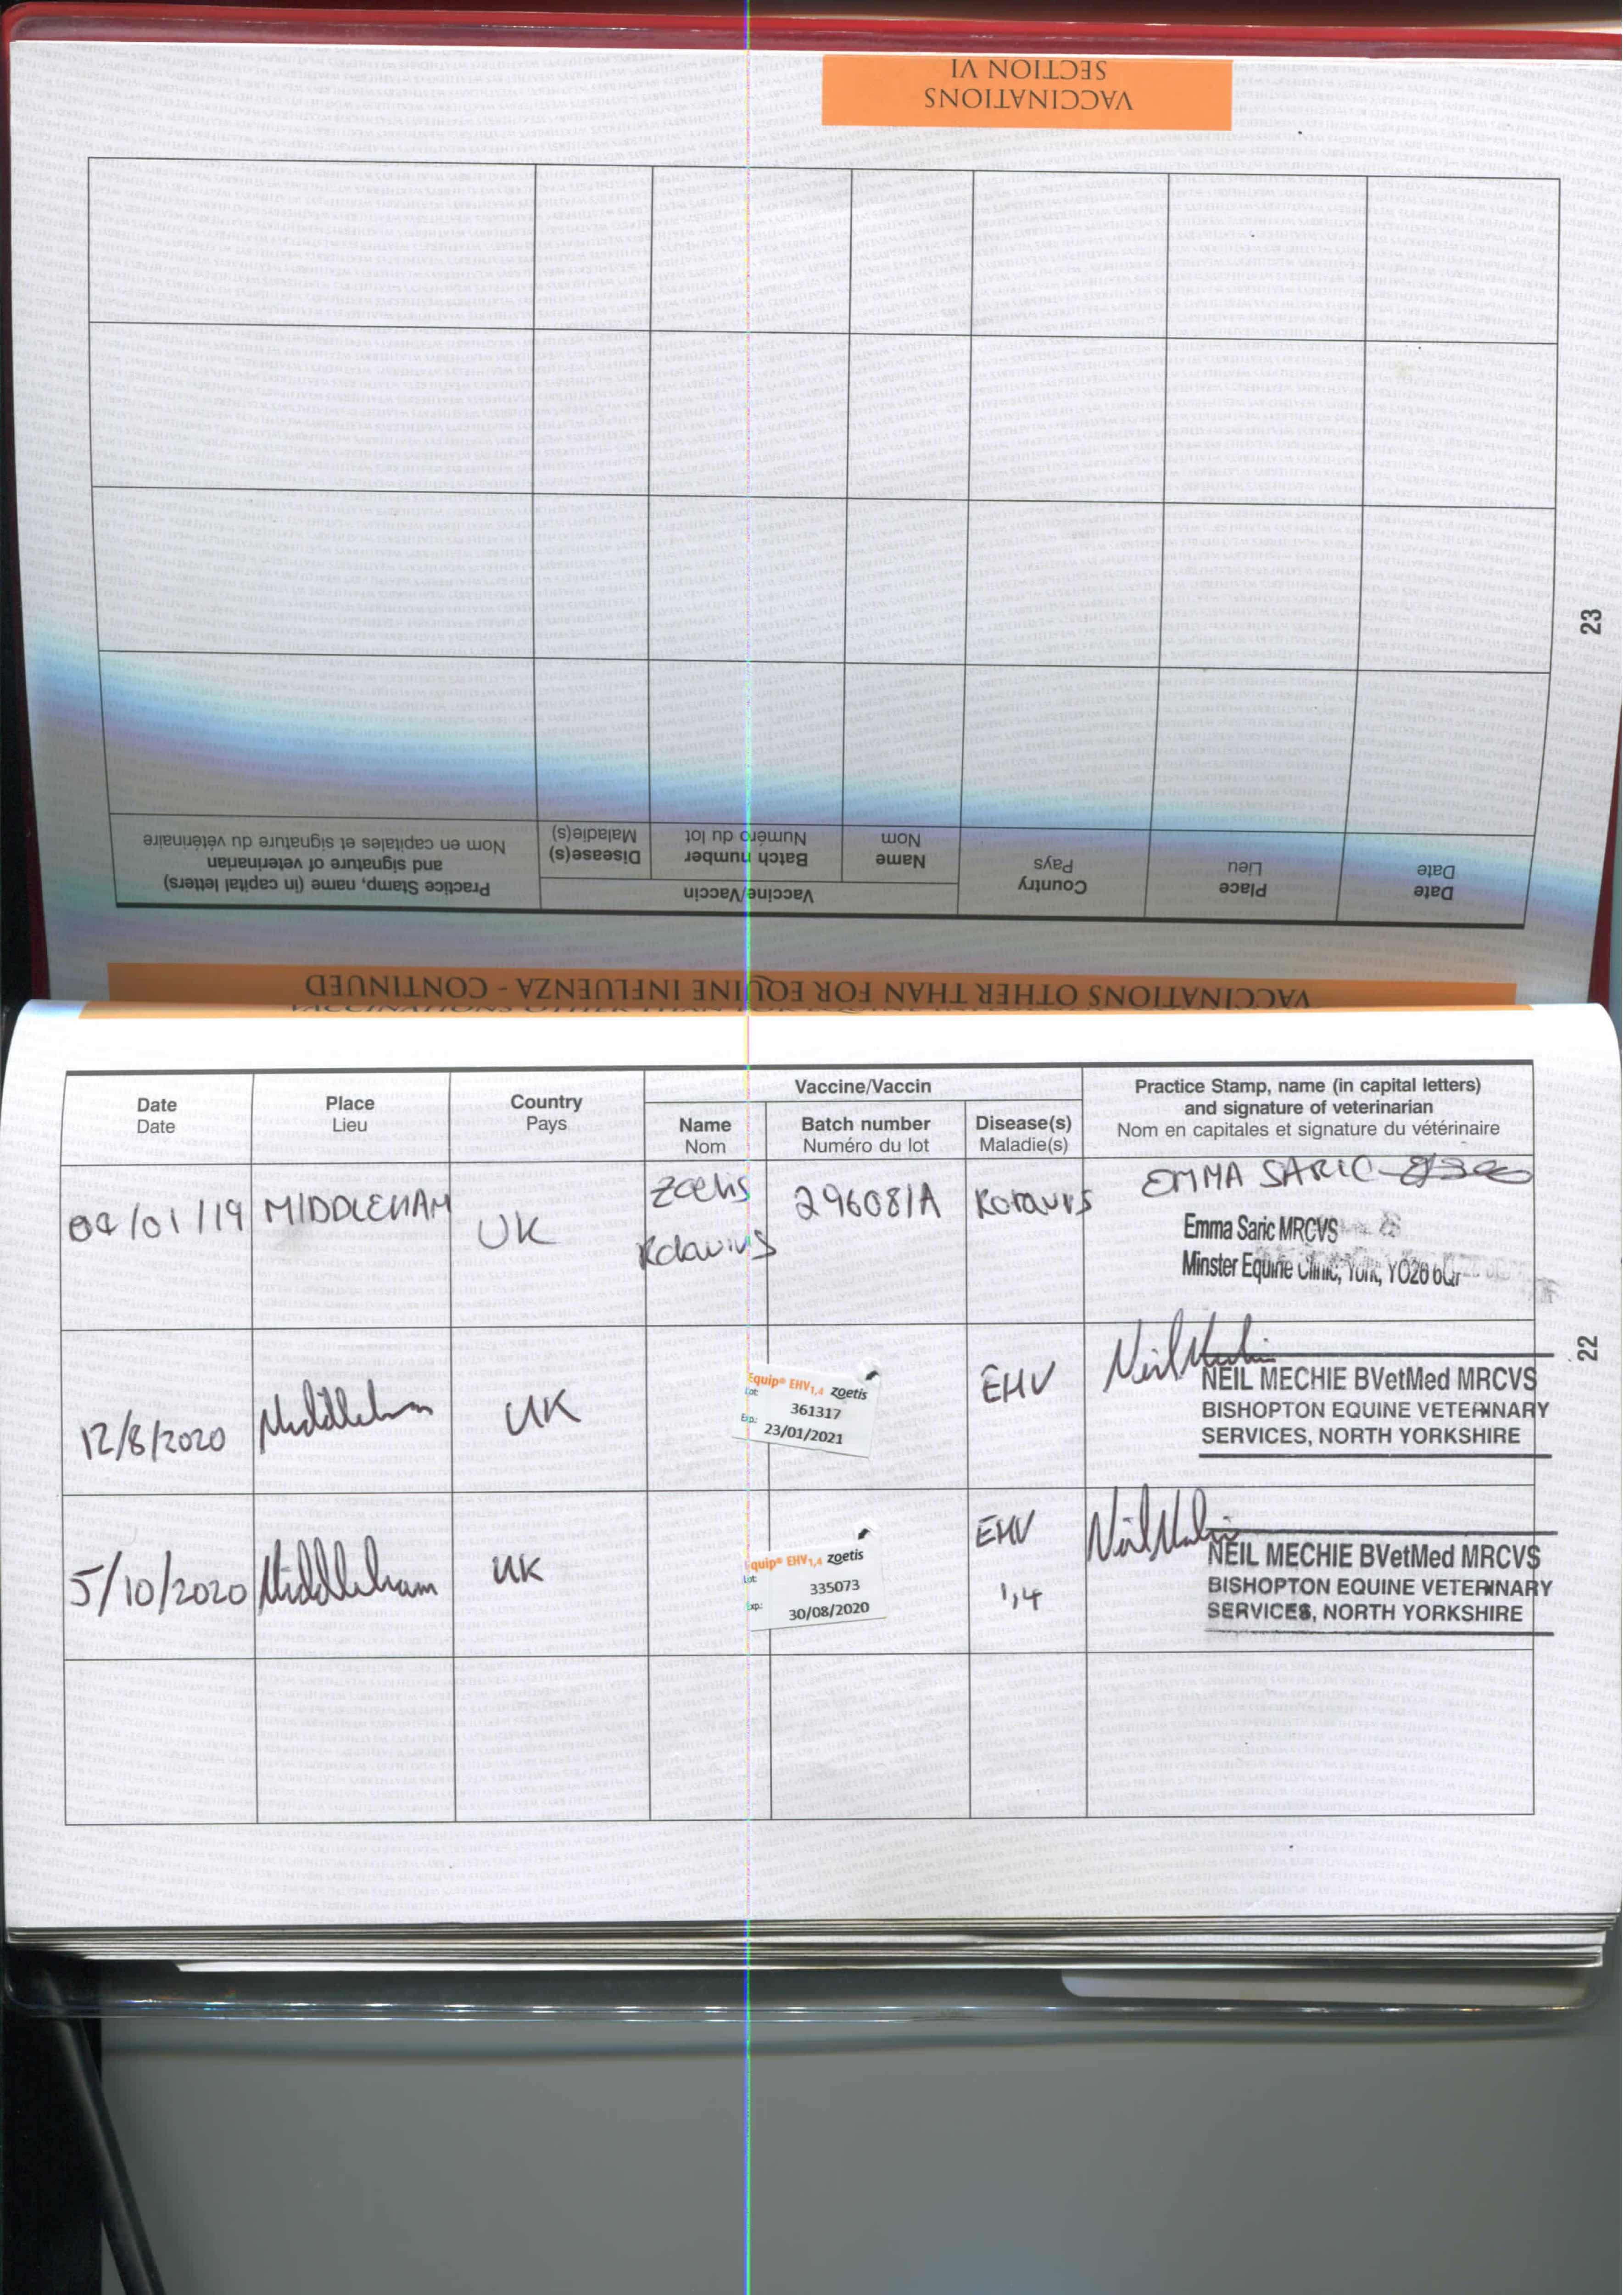 VACCINATIONS
SECTION VI
VACCINATIONS OTHER THAN FOR EQUINE INFLUENZA - CONTINUED
Date
Date
Place
Lieu
Country
Pays
Vaccine/Vaccin
Name
Nom
Batch number
Numéro du lot
Disease(s)
Maladie(s)
Practice Stamp, name (in capital letters)
and signature of veterinarian
Nom en capitales et signature du vétérinaire
23
Date
Date
Place
Lieu
Country
Pays
Vaccine/Vaccin
Name
Nom
Batch number
Numéro du lot
Disease(s)
Maladie(s)
Practice Stamp, name (in capital letters)
and signature of veterinarian
Nom en capitales et signature du vétérinaire
/01/19
MIDDLEHAM
UK
Zoetis
296081A
EMMA SARIC
Emma Saric MRCVS
Minster Equine Clinic, York, YO26
12/8/2020
Middleham
UK
Equip® EHV1,4 zoetis
Lot:
361317
Exp.:
23/01/2021
EHV
Neil Mechie
NEIL MECHIE BVetMed MRCVS
BISHOPTON EQUINE VETERINARY
SERVICES, NORTH YORKSHIRE
22
5/10/2020
Middleham
UK
quip® EHV1,4 zoetis
Lot:
335073
Exp.:
30/08/2020
EHV
1,4
Neil Mechie
NEIL MECHIE BVetMed MRCVS
BISHOPTON EQUINE VETERINARY
SERVICES, NORTH YORKSHIRE